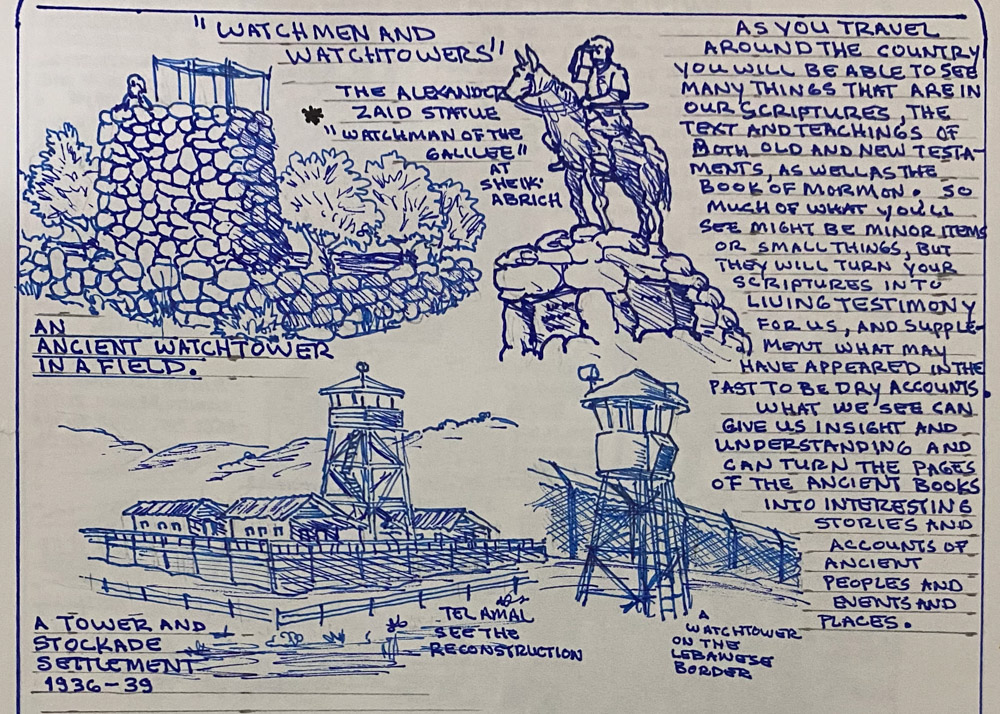 "WATCHMEN AND
WATCHTOWERS"
THE ALEXANDER
* ZAID STATUE
"WATCHMAN OF THE
GALILEE"
AT
SHEIK'
ABRICH
AN
ANCIENT WATCHTOWER
IN A FIELD.
AS YOU TRAVEL
AROUND THE COUNTRY
YOU WILL BE ABLE TO SEE
MANY THINGS THAT ARE IN
OUR SCRIPTURES, THE
TEXT AND TEACHINGS OF
BOTH OLD AND NEW TESTA-
MENTS, AS WELL AS THE
BOOK OF MORMON. SO
MUCH OF WHAT YOU'LL
SEE MIGHT BE MINOR ITEMS
OR SMALL THINGS, BUT
THEY WILL TURN YOUR
SCRIPTURES INTO
LIVING TESTIMONY
FOR US, AND SUPPLE-
MENT WHAT MAY
HAVE APPEARED IN THE
PAST TO BE DRY ACCOUNTS.
WHAT WE SEE CAN
GIVE US INSIGHT AND
UNDERSTANDING AND
CAN TURN THE PAGES
OF THE ANCIENT BOOKS
INTO INTERESTING
STORIES AND
ACCOUNTS OF
ANCIENT
PEOPLES AND
EVENTS AND
PLACES.
A TOWER AND
STOCKADE
SETTLEMENT
1936-39
TEL AMAL
SEE THE
RECONSTRUCTION
A
WATCHTOWER
ON THE
LEBANESE
BORDER